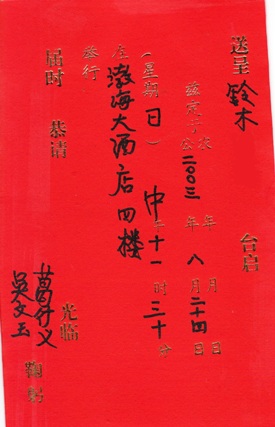 送呈 铃木 台启
兹定于 公 二00三 年 八 月 二十四 日
农 年 月 日
(星期 日 ) 中午 十一 时 三十 分
在 渤海大酒店四楼
举行
届时 恭请 光临
吴文玉 鞠躬